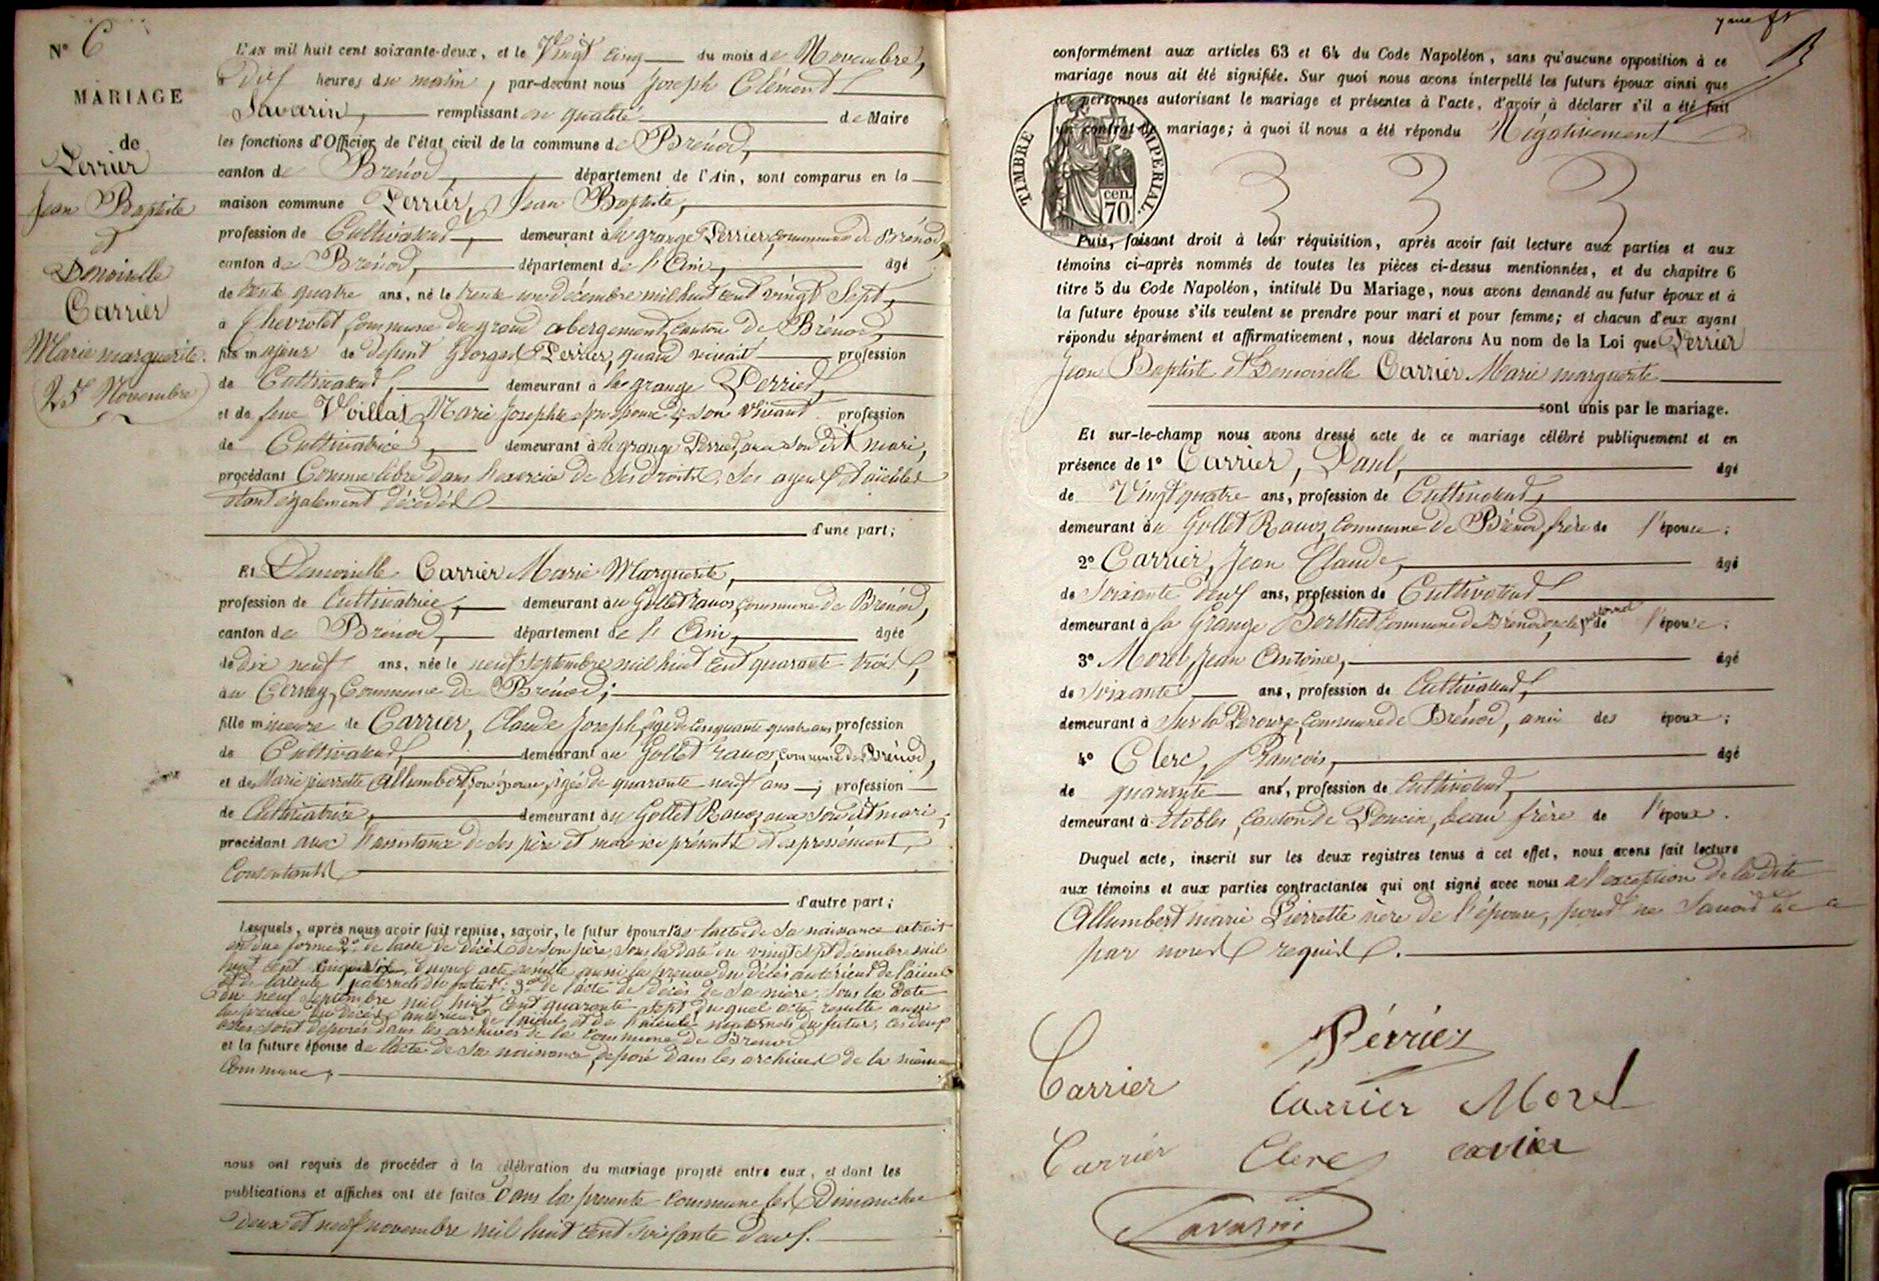 N° 6
MARIAGE
de
Perrier
Jean Baptiste
et
Demoiselle
Carrier
Marie marguerite.
25 Novembre
L'AN mil huit cent soixante-deux, et le Vingt cinq du mois de Novembre,
à dix heures du matin, par-devant nous Joseph Clément
Savarin, remplissant en qualité de Maire
les fonctions d'Officier de l'état civil de la commune de Brénod,
canton de Brénod, département de l'Ain, sont comparus en la
maison commune Perrier, Jean Baptiste,
profession de Cultivateur, demeurant à la grange Perrier, commune de Brénod,
canton de Brénod, département de l'Ain, âgé
de trente quatre ans, né le trente un décembre mil huit cent vingt sept,
à Chevrolet commune du grand abergement, canton de Brénod,
fils majeur de défunt Georges Perrier, quand vivait profession
de Cultivateur, demeurant à la grange Perrier,
et de feue Voillat, Marie Josephte, son épouse, de son vivant profession
de Cultivatrice, demeurant à la grange Perrier, avec son dit mari,
procédant Comme libre dans l'exercice de ses droits, ses ayeuls et aïeules
étant également décédés
d'une part;
Et Demoiselle Carrier Marie Marguerite,
profession de Cultivatrice, demeurant au Gollet Ravoz, commune de Brénod,
canton de Brénod, département de l'Ain, âgée
de dix neuf ans, née le neuf septembre mil huit cent quarante trois,
au Cerney, Commune de Brénod;
fille mineure de Carrier, Claude Joseph, âgé de cinquante quatre ans, profession
de Cultivateur, demeurant au Gollet Ravoz, commune de Brénod,
et de Marie pierrette Allumbert, son épouse, âgée de quarante neuf ans; profession
de Cultivatrice, demeurant au Gollet Ravoz, avec son dit mari,
procédant avec l'assistance de ses père et mère ici présents et expressément
Consentants
d'autre part;
Lesquels, après nous avoir fait remise, savoir, le futur époux 1° de l'acte de sa naissance extrait
en due forme 2° de l'acte de décès de son père, sous la date du vingt sept décembre mil
huit cent duquel acte résulte aussi la preuve du décès antérieur de l'aïeul
et de l'aïeule paternels du futur: 3° de l'acte de décès de sa mère, sous la date
du neuf septembre mil huit cent quarante sept, duquel acte résulte aussi
la preuve du décès antérieur de l'aïeul et de l'aïeule maternels du futur, ces deux
actes sont déposés dans les archives de la commune de Brénod
et la future épouse de l'acte de sa naissance, déposé dans les archives de la même
Commune,
nous ont requis de procéder à la célébration du mariage projeté entre eux, et dont les
publications et affiches ont été faites Dans la présente commune les Dimanches
deux et neuf novembre mil huit cent soixante deux.
conformément aux articles 63 et 64 du Code Napoléon, sans qu'aucune opposition à ce
mariage nous ait été signifiée. Sur quoi nous avons interpellé les futurs époux ainsi que
les personnes autorisant le mariage et présentes à l'acte, d'avoir à déclarer s'il a été fait
un contrat de mariage; à quoi il nous a été répondu Négativement
TIMBRE IMPERIAL.
cen.
70.
Puis, faisant droit à leur réquisition, après avoir fait lecture aux parties et aux
témoins ci-après nommés de toutes les pièces ci-dessus mentionnées, et du chapitre 6
titre 5 du Code Napoléon, intitulé Du Mariage, nous avons demandé au futur époux et à
la future épouse s'ils veulent se prendre pour mari et pour femme; et chacun d'eux ayant
répondu séparément et affirmativement, nous déclarons Au nom de la Loi que Perrier
Jean Baptiste et Demoiselle Carrier Marie marguerite
sont unis par le mariage.
Et sur-le-champ nous avons dressé acte de ce mariage célébré publiquement et en
présence de 1° Carrier, Paul, âgé
de Vingt quatre ans, profession de Cultivateur,
demeurant au Gollet Ravoz, commune de Brénod, frère de l'épouse;
2° Carrier, Jean Claude, âgé
de Soixante deux ans, profession de Cultivateur
demeurant à la Grange Berthet commune de Brénod, oncle paternel de l'épouse;
3° Morel, Jean Antoine, âgé
de Soixante ans, profession de Cultivateur,
demeurant à Sur la Perouse, commune de Brénod, ami des époux;
4° Clerc, François, âgé
de quarante ans, profession de Cultivateur,
demeurant à Etables, canton de Poncin, beau frère de l'époux.
Duquel acte, inscrit sur les deux registres tenus à cet effet, nous avons fait lecture
aux témoins et aux parties contractantes qui ont signé avec nous à l'exception de la dite
Allumbert marie Pierrette mère de l'épouse, pour ne savoir de ce
par nous requis.
Pérriez
Carrier
Carrier Morel
Carrier Clerc carrier
Savarin